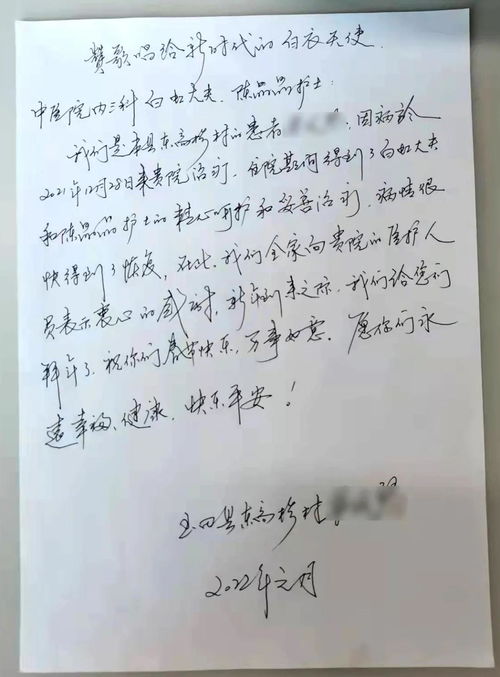 赞歌唱给新时代的白衣天使
中医院内三科白虹大夫、陈晶晶护士:
我们是本县东高桥村的患者 :因病於
2021年12月28日来贵院治疗，住院期间得到了白虹大夫
和陈晶晶护士的精心呵护和妥善治疗，病情很
快得到了恢复，在此，我们全家向贵院的医护人
员表示衷心的感谢，新年到来之际，我们给您们
拜年了，祝你们春节快乐，万事如意，愿你们永
远幸福、健康、快乐平安！
玉田县东高桥村
2022年元月